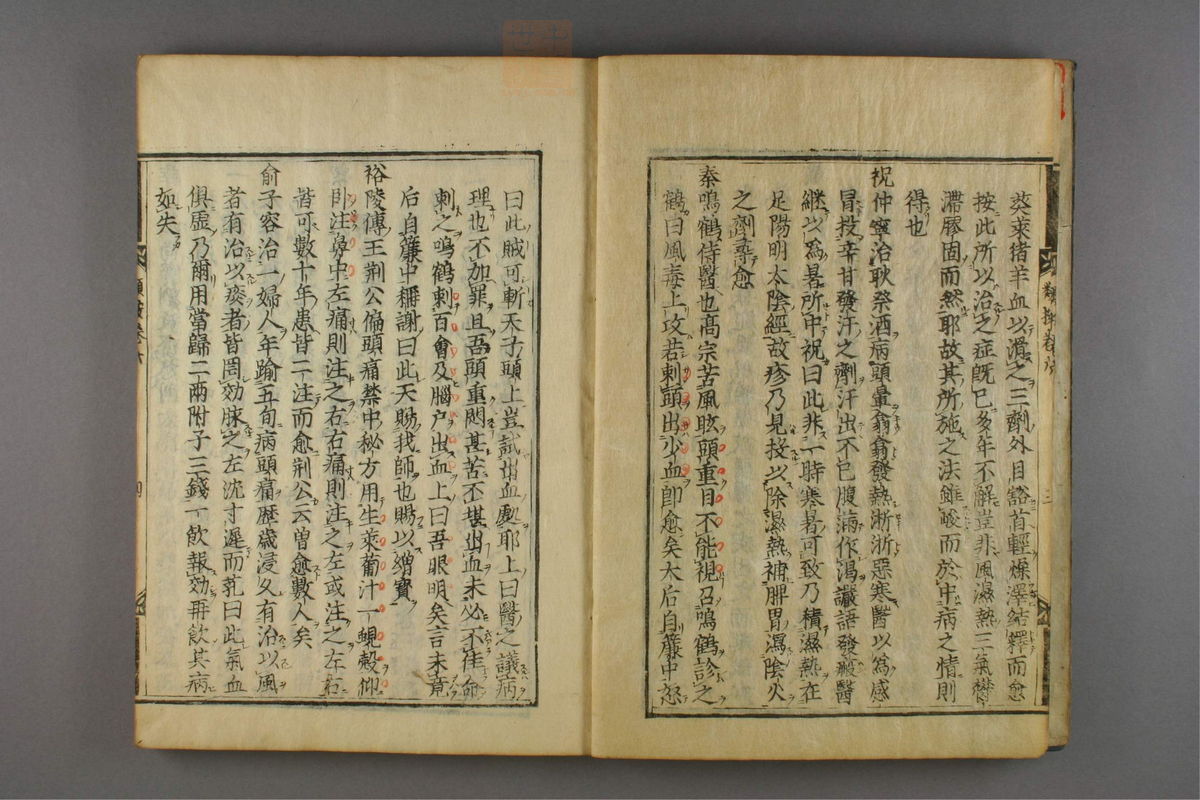 葵菜猪羊血以滑之三劑外目豁首輕燥澤結釋而愈
按此所以治之症既已多年不解豈非風濕熱三氣欝
滯膠固而然耶故其所施之法雖峻而於中病之情則
得也
祝仲寧治耿祭酒病頭暈翕翕發熱淅淅惡寒醫以為感
冒投辛甘發汗之劑汗出不已腹滿作渴讝語發癍醫
繼以為暑所中祝曰此非一時寒暑可致乃積濕熱在
足陽明太陰經故疹乃見投以除濕熱補脾胃瀉陰火
之劑尋愈
秦鳴鶴侍醫也高宗苦風眩頭重目不能視召鳴鶴診之
鶴曰風毒上攻若刺頭出少血即愈矣太后自簾中怒
曰此賊可斬天子頭上豈試出血處耶上曰醫之議病
理也不加罪且吾頭重悶甚苦不堪出血未必不佳命
刺之鳴鶴刺百會及腦户出血上曰吾眼明矣言未竟
后自簾中稱謝曰此天賜我師也賜以繒寶
裕陵傳王荊公偏頭痛禁中秘方用生萊蔔汁一蜆殼仰
卧注鼻中左痛則注之右右痛則注之左或注之左右
皆可數十年患皆二注而愈荊公云曽愈數人矣
俞子容治一婦人年踰五旬病頭痛歴歳浸久有治以風
者有治以痰者皆罔効脉之左沈寸遲而芤曰此氣血
俱虛乃爾用當歸二兩附子三錢一飲報効再飲其病
如失